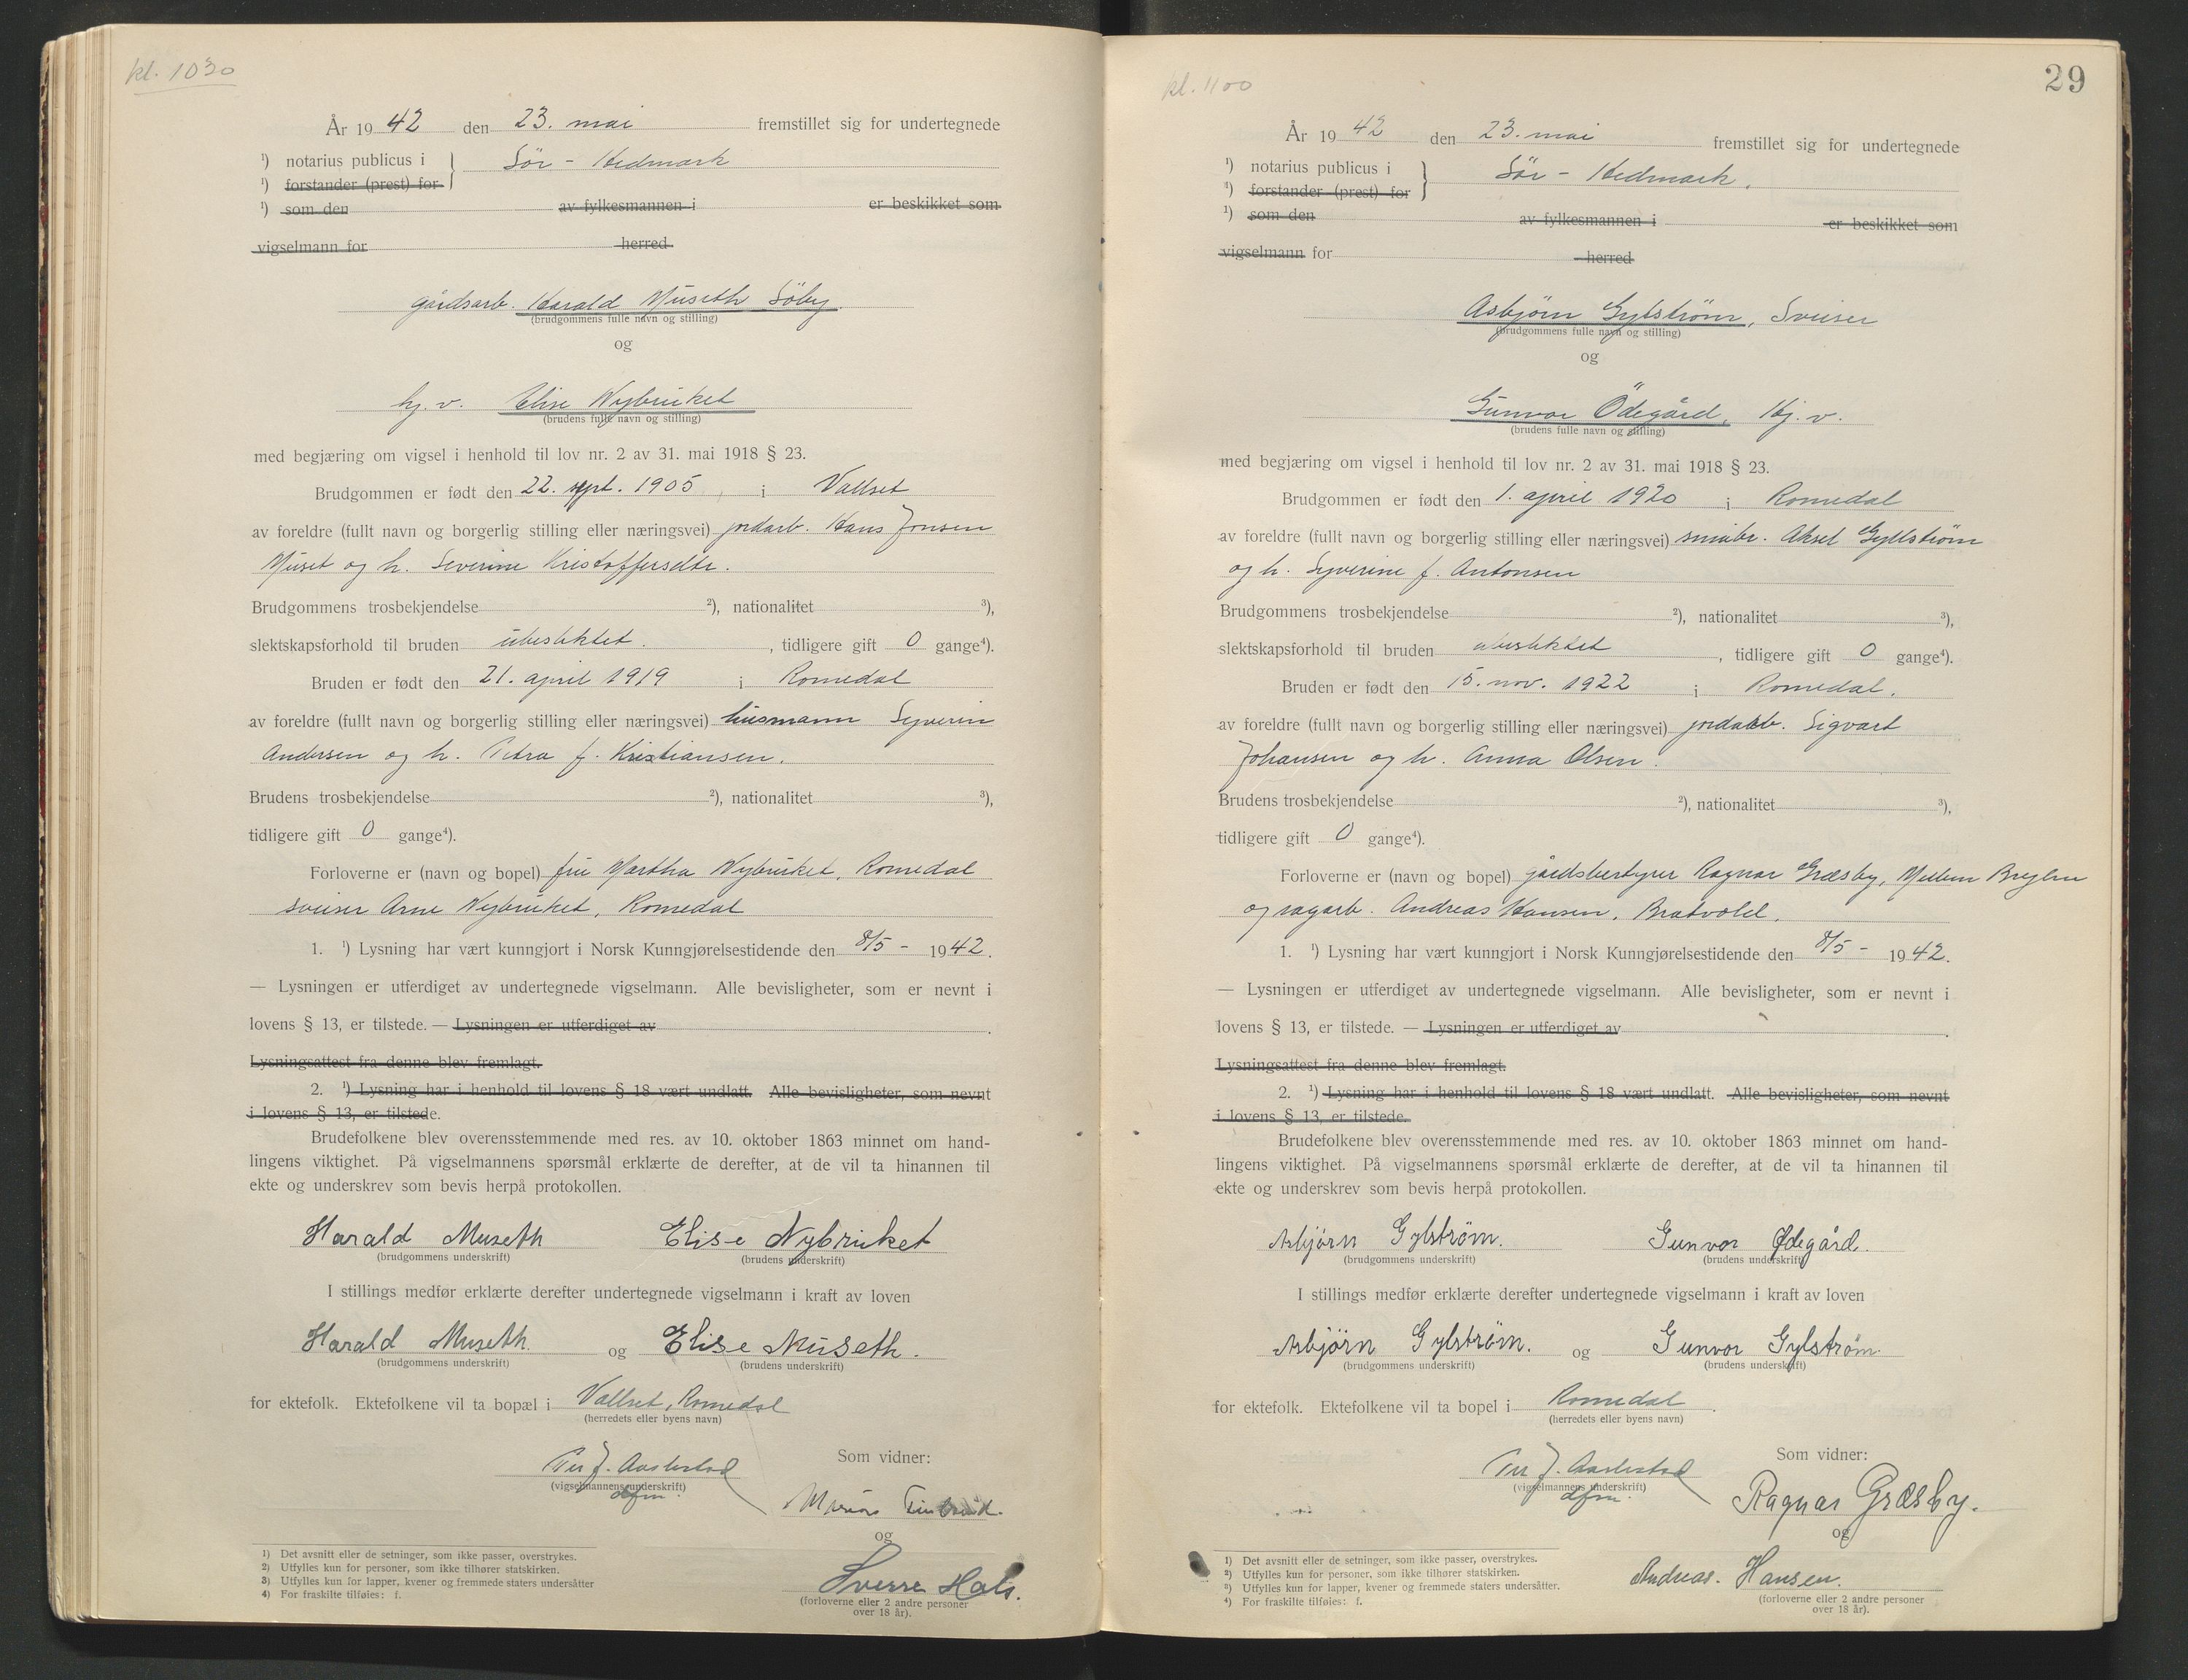 kl. 1030
År 1942 den 23. mai fremstillet sig for undertegnede
¹) notarius publicus i } Sör - Hedmark
¹) forstander (prest) for
¹) som den av fylkesmannen i er beskikket som
vigselmann for herred
gårdsarb. Harald Museth Söby.
(brudgommens fulle navn og stilling)
og
hj. v. Elise Nybruket
(brudens fulle navn og stilling)
med begjæring om vigsel i henhold til lov nr. 2 av 31. mai 1918 § 23.
Brudgommen er født den 22. sept. 1905 i Vallset
av foreldre (fullt navn og borgerlig stilling eller næringsvei) jordarb. Hans Jonsen
Muset og h. Severine Kristoffersdtr.
Brudgommens trosbekjendelse ²), nationalitet ³),
slektskapsforhold til bruden ubeslektet. , tidligere gift 0 gange⁴).
Bruden er født den 21. april 1919 i Romedal
av foreldre (fullt navn og borgerlig stilling eller næringsvei) husmann Syverin
Andersen og h. Petra f. Kristiansen.
Brudens trosbekjendelse ²), nationalitet ³),
tidligere gift 0 gange⁴).
Forloverne er (navn og bopel) fru Martha Nybruket, Romedal
sveiser Arne Nybruket, Romedal
1. ¹) Lysning har vært kunngjort i Norsk Kunngjørelsestidende den 8/5 - 1942.
— Lysningen er utferdiget av undertegnede vigselmann. Alle bevisligheter, som er nevnt i
lovens § 13, er tilstede. — Lysningen er utferdiget av .
Lysningsattest fra denne blev fremlagt.
2. ¹) Lysning har i henhold til lovens § 18 vært undlatt. Alle bevisligheter, som nevnt
i lovens § 13, er tilstede.
Brudefolkene blev overensstemmende med res. av 10. oktober 1863 minnet om hand-
lingens viktighet. På vigselmannens spørsmål erklærte de derefter, at de vil ta hinannen til
ekte og underskrev som bevis herpå protokollen.
Harald Museth Elise Nybruket
(brudgommens underskrift) (brudens underskrift)
I stillings medfør erklærte derefter undertegnede vigselmann i kraft av loven
Harald Museth. og Elise Museth.
(brudgommens underskrift) (brudens underskrift)
for ektefolk. Ektefolkene vil ta bopæl i Vallset, Romedal
(herredets eller byens navn)
Per J. Aarlestad Som vidner:
(vigselmannens underskrift)
dfm.
Marius
og
Sverre Hals.
(forloverne eller 2 andre personer
over 18 år).
1) Det avsnitt eller de setninger, som ikke passer, overstrykes.
2) Utfylles kun for personer, som ikke tilhører statskirken.
3) Utfylles kun for lapper, kvener og fremmede staters undersåtter
4) For fraskilte tilføies: f.
kl. 1100
29
År 1942 den 23. mai fremstillet sig for undertegnede
¹) notarius publicus i } Sör - Hedmark.
¹) forstander (prest) for
¹) som den av fylkesmannen i er beskikket som
vigselmann for herred
Asbjørn Gylstrøm, Sveiser
(brudgommens fulle navn og stilling)
og
Gunvor Ödegård, Hj. v.
(brudens fulle navn og stilling)
med begjæring om vigsel i henhold til lov nr. 2 av 31. mai 1918 § 23.
Brudgommen er født den 1. april 1920 i Romedal
av foreldre (fullt navn og borgerlig stilling eller næringsvei) småbr. Aksel Gyllstrøm
og h. Syverine f. Antonsen
Brudgommens trosbekjendelse ²), nationalitet ³),
slektskapsforhold til bruden ubeslektet , tidligere gift 0 gange⁴).
Bruden er født den 15. nov. 1922 i Romedal.
av foreldre (fullt navn og borgerlig stilling eller næringsvei) jordarb. Sigvart
Johansen og h. Anna Olsen.
Brudens trosbekjendelse ²), nationalitet ³),
tidligere gift 0 gange⁴).
Forloverne er (navn og bopel) gårdsbestyrer Ragnar Græsby, Mellum
og sagarb. Andreas Hansen, Bratvold.
1. ¹) Lysning har vært kunngjort i Norsk Kunngjørelsestidende den 8/5 - 1942.
— Lysningen er utferdiget av undertegnede vigselmann. Alle bevisligheter, som er nevnt i
lovens § 13, er tilstede. — Lysningen er utferdiget av .
Lysningsattest fra denne blev fremlagt.
2. ¹) Lysning har i henhold til lovens § 18 vært undlatt. Alle bevisligheter, som nevnt
i lovens § 13, er tilstede.
Brudefolkene blev overensstemmende med res. av 10. oktober 1863 minnet om hand-
lingens viktighet. På vigselmannens spørsmål erklærte de derefter, at de vil ta hinannen til
ekte og underskrev som bevis herpå protokollen.
Asbjørn Gylstrøm. Gunvor Ødegård.
(brudgommens underskrift) (brudens underskrift)
I stillings medfør erklærte derefter undertegnede vigselmann i kraft av loven
Asbjørn Gylstrøm. og Gunvor Gylstrøm.
(brudgommens underskrift) (brudens underskrift)
for ektefolk. Ektefolkene vil ta bopel i Romedal .
(herredets eller byens navn)
Per J. Aarlestad Som vidner:
(vigselmannens underskrift)
dfm.
Ragnar Græsby.
og
Andreas. Hansen.
(forloverne eller 2 andre personer
over 18 år).
¹) Det avsnitt eller de setninger, som ikke passer, overstrykes.
²) Utfylles kun for personer, som ikke tilhører statskirken.
³) Utfylles kun for lapper, kvener og fremmede staters undersåtter.
⁴) For fraskilte tilføies: f.